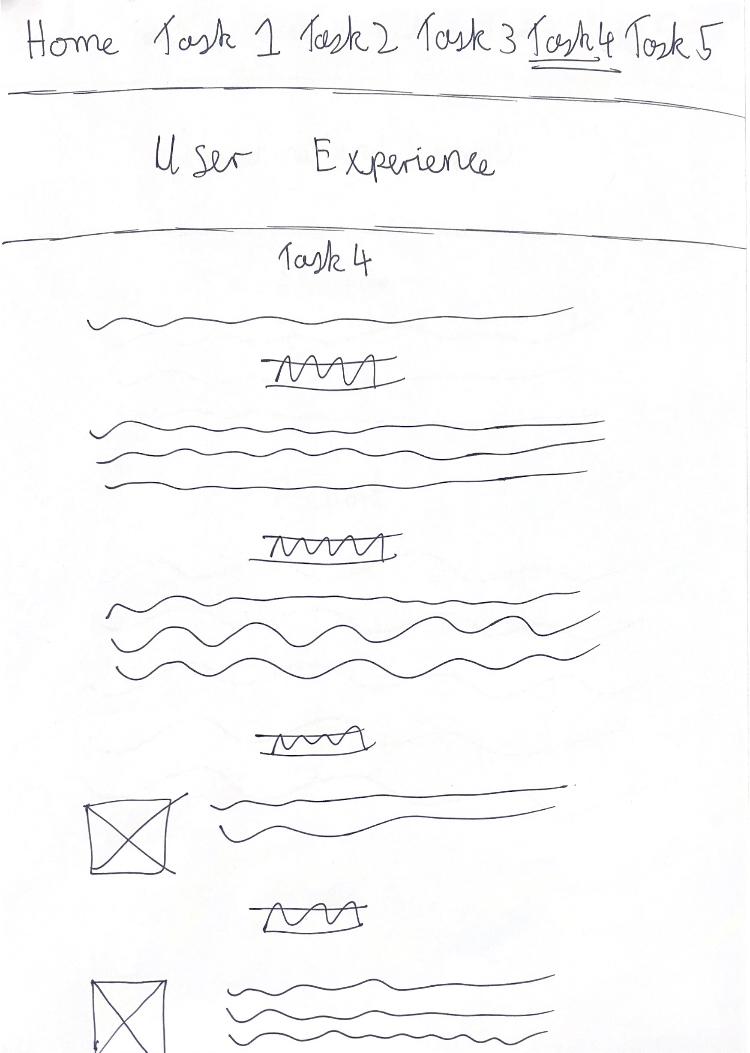 Home Task 1 Task 2 Task 3 Task 4 Task 5
User Experience
Task 4